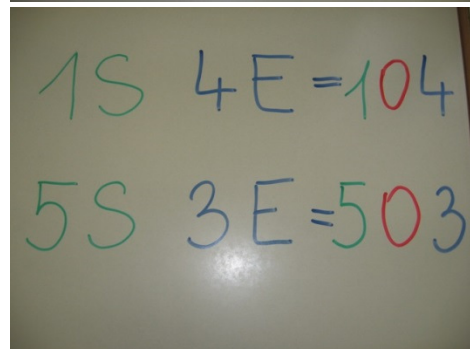 1S 4E=104
5S 3E=503